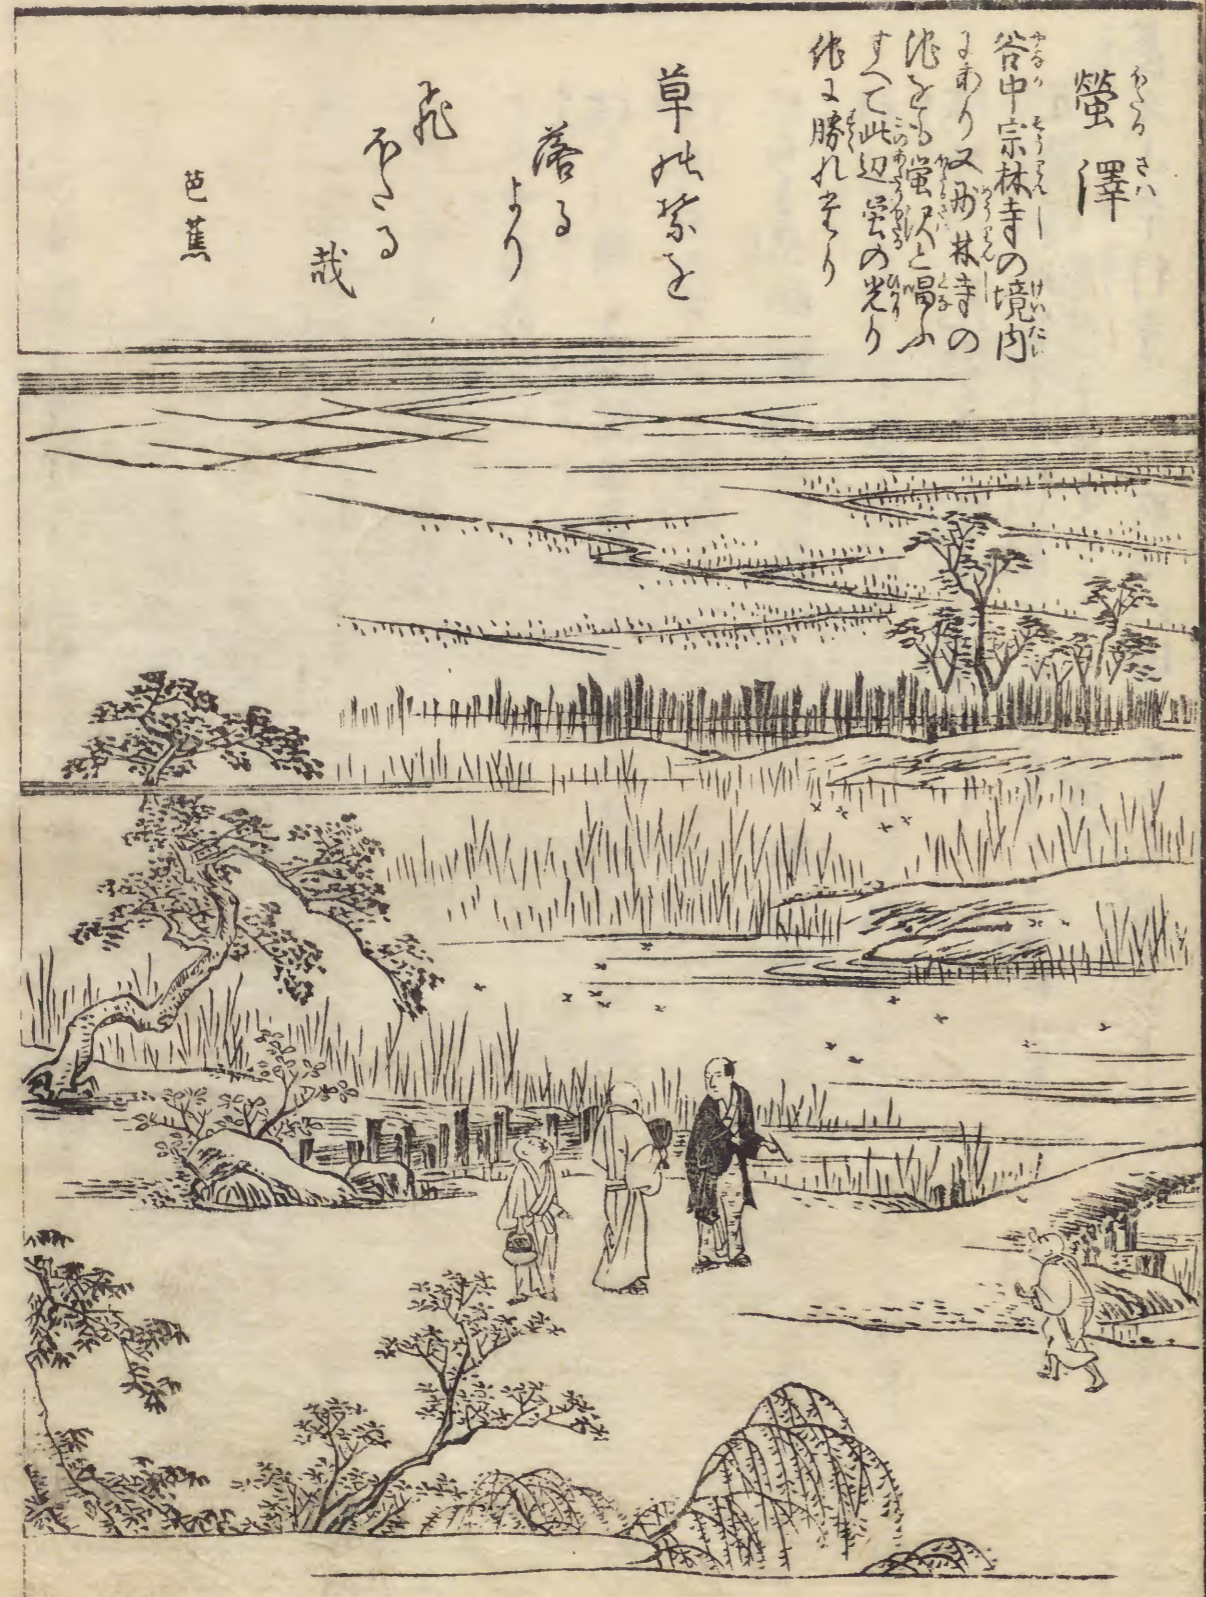 螢澤
谷中宗林寺の境内
にあり又妙林寺の
池をも蛍沢と唱ふ
すへて此辺蛍の光り
他に勝れたり
草の葉を
落る
より
飛
ほたる
哉
芭蕉